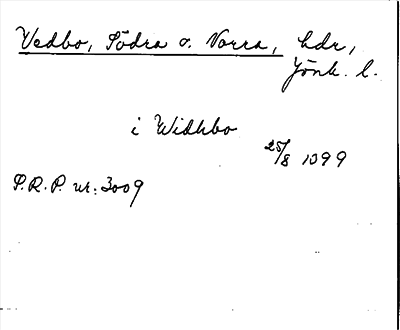 Vedbo, Södra o. Norra, hdr,
Jönk. l.
i Widhbo
25/8 1399
P.R.P. nr: 3009